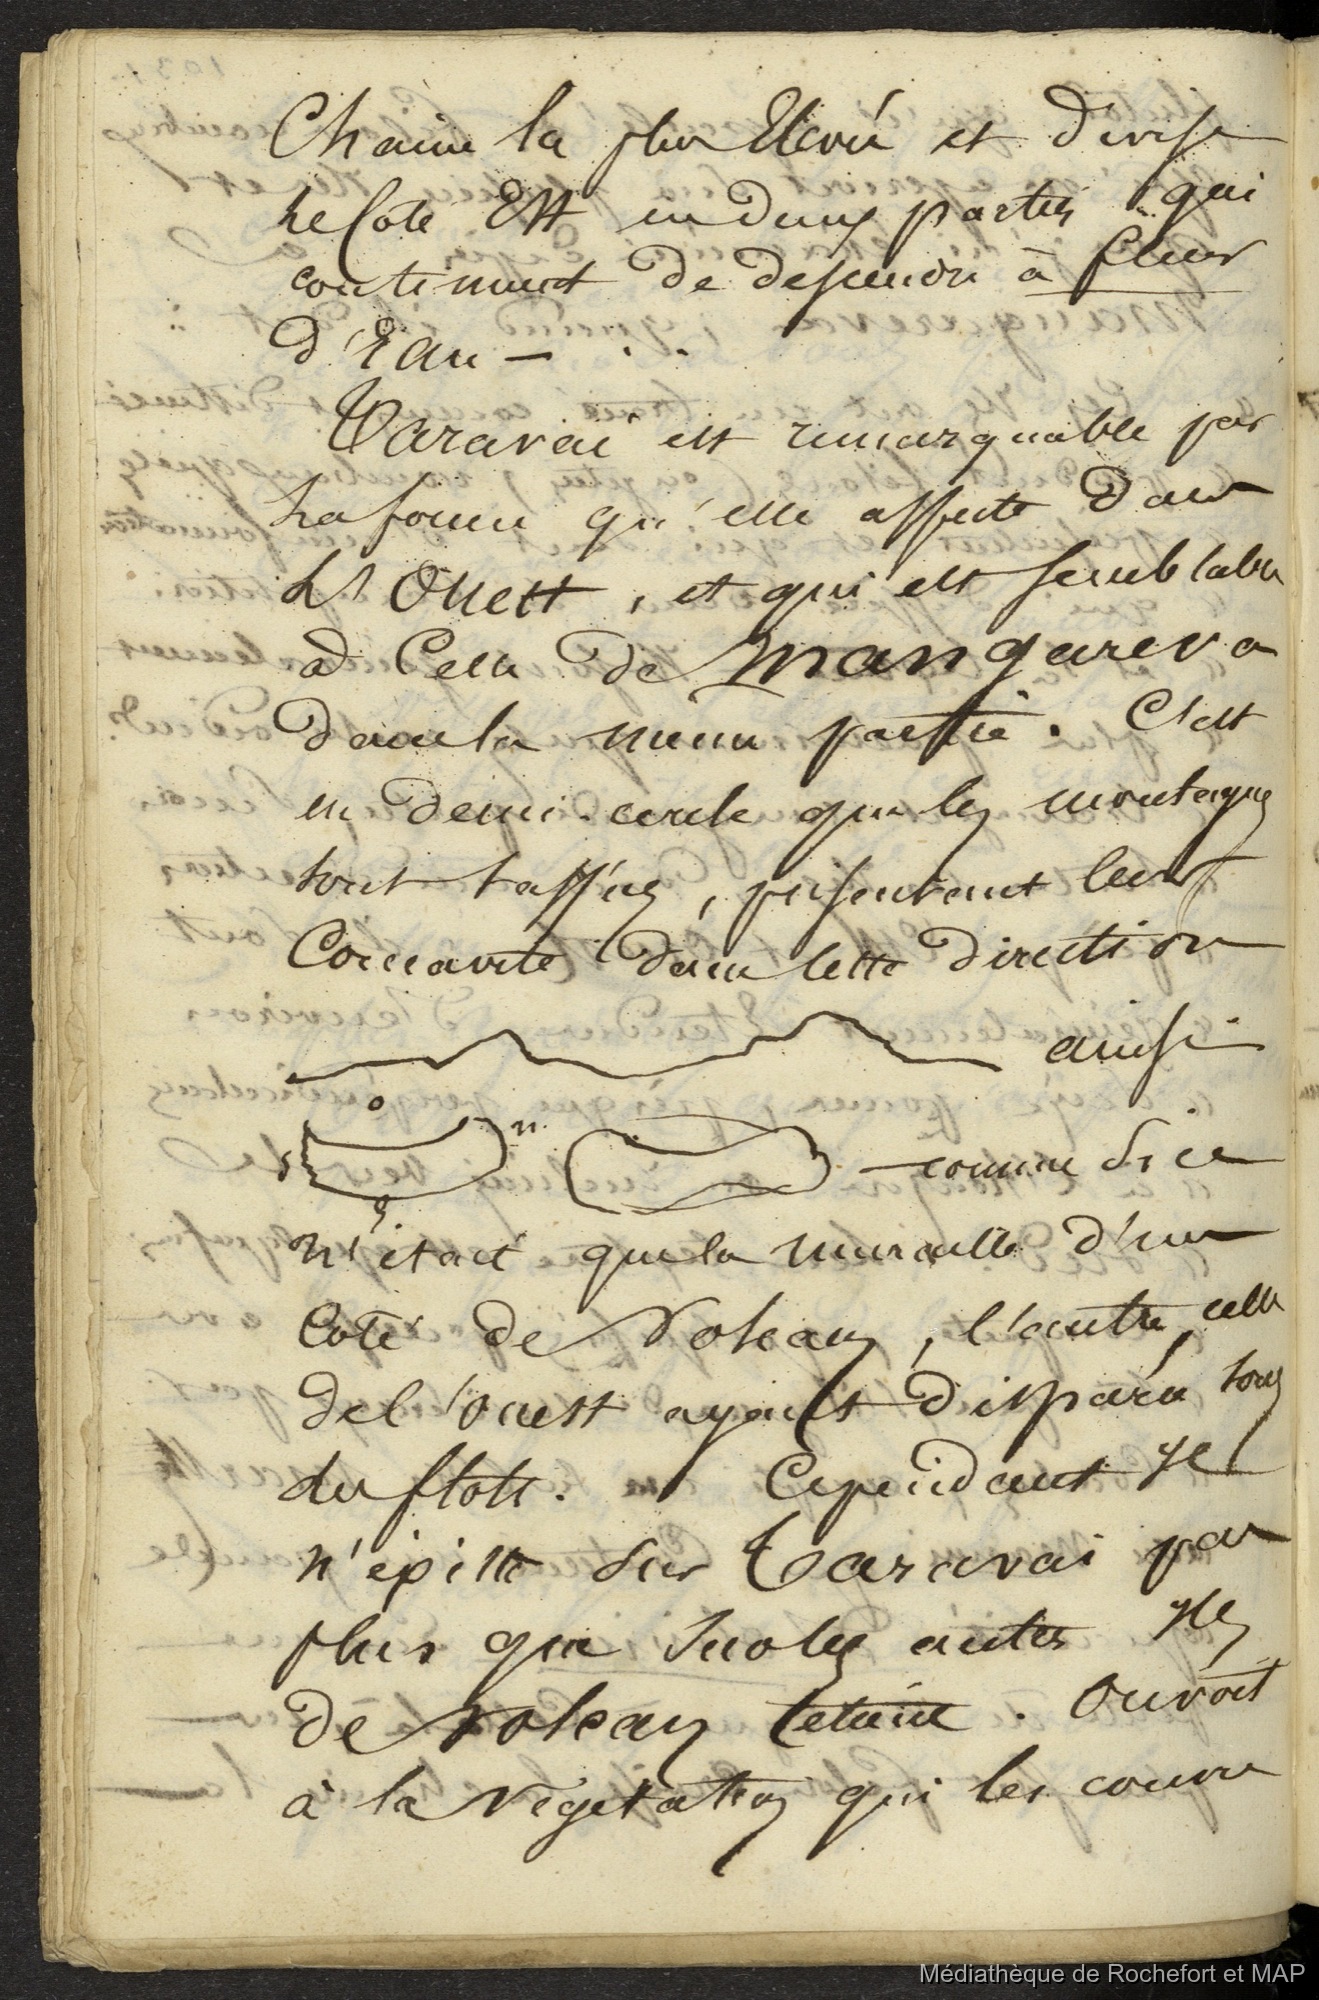 Chaine la plus Elevée et divise
le Coté Est en deux parties qui
continuent de descendre à fleur
d'Eau —
Taravai est remarquable par
la forme qu'elle affecte dans
l'Ouest, et qui est semblable
à Celle de Mangareva
dans la même partie. C'est
en demi-cercle que les montagnes
sont tassées, présentant leur
Concavité dans cette direction
ainsi
o
n
s comme si ce
e
n'était que la muraille d'un
Coté de Volcan, l'autre, celle
de l'ouest ayant disparu sous
les flots. Cependant il
n'existe sur Taravai pas
plus que sur les autres Iles
de Volcan éteint. On voit
à la végétation qui les couvre
Médiathèque de Rochefort et MAP